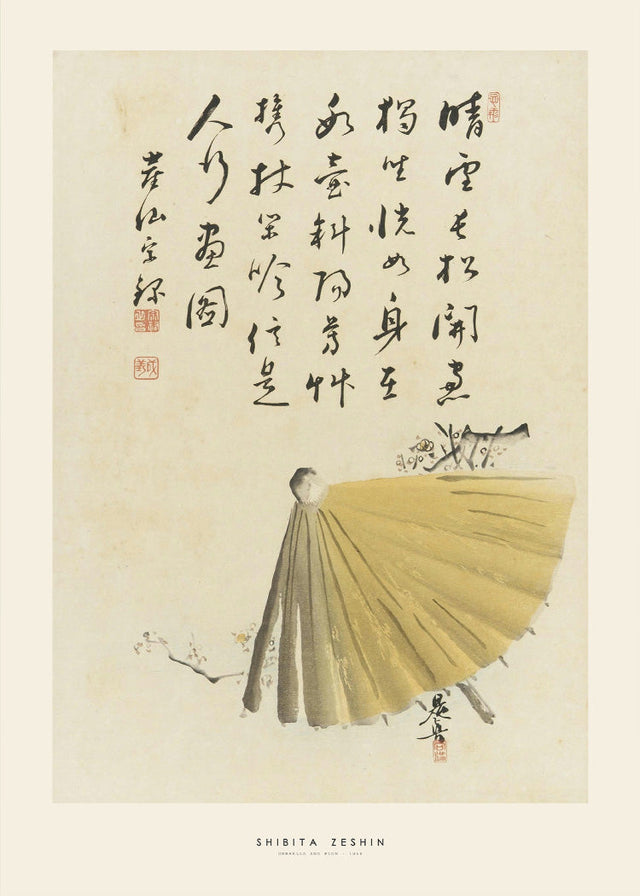 晴雪長松開窓
獨坐恍如身在
氷壺斜陽芳艸
携杖閑吟信是
人行畫圖
是真
SHIBITA ZESHIN